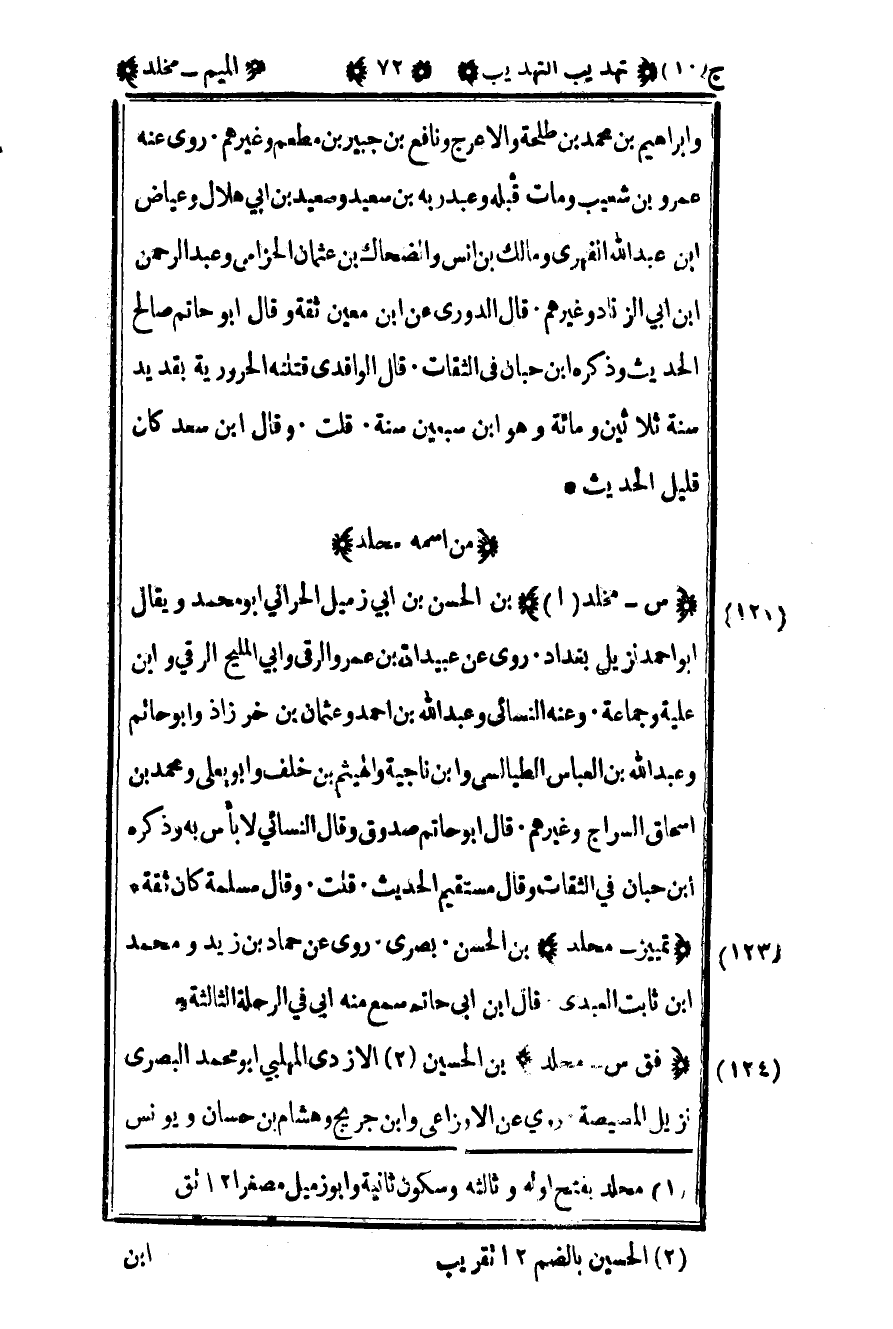 ج(١٠) ﴿ تهذيب التهذيب ﴾ ﴿ ٧٢ ﴾ ﴿ الميم ـ مخلد ﴾
وابراهيم بن محمد بن طلحة والاعرج ونافع بن جبير بن مطعم وغيرهم ٠ روى عنه
عمرو بن شعيب ومات قبله وعبد ربه بن سعيد وصعيد بن ابي هلال وعياض
ابن عبدالله الفهرى ومالك بن انس والضحاك بن عثمان الحزامى وعبدالرحمن
ابن ابي الزناد وغيرهم ٠ قال الدورى عن ابن معين ثقة وقال ابو حاتم صالح
الحديث وذكره ابن حبان فى الثقات ٠ قال الواقدى قتلته الحرورية بقديد
سنة ثلاثين ومائة وهو ابن سبعين سنة ٠ قلت ٠ وقال ابن سعد كان
قليل الحديث •
﴿ من اسمه مخلد ﴾
(١٢١) ﴿ س ـ مخلد (١) ﴾ بن الحسن بن ابي زميل الحرانى ابو محمد ويقال
ابو احمد نزيل بغداد ٠ روى عن عبيدالله بن عمرو الرقى وابي المليح الرقي وابن
علية وجماعة ٠ وعنه النسائى وعبدالله بن احمد وعثمان بن خرزاذ وابو حاتم
وعبدالله بن العباس الطيالسى وابن ناجية والهيثم بن خلف وابو يعلى ومحمد بن
اسحاق السراج وغيرهم ٠ قال ابو حاتم صدوق وقال النسائي لا بأس به وذكره
ابن حبان في الثقات وقال مستقيم الحديث ٠ قلت ٠ وقال مسلمة كان ثقة •
(١٢٣) ﴿ تمييز ـ مخلد ﴾ بن الحسن ٠ بصرى ٠ روى عن حماد بن زيد ومحمد
ابن ثابت العبدى ٠ قال ابن ابي حاتم سمع منه ابي في الرحلة الثالثة •
(١٢٤) ﴿ فق س ـ مخلد ﴾ بن الحسين (٢) الازدى المهلبي ابو محمد البصرى
نزيل المصيصة ٠ روي عن الاوزاعى وابن جريج وهشام بن حسان ويونس
(١) مخلد بفتح اوله وثالثه وسكون ثانية وابو زميل مصغرا ١٢ تق
(٢) الحسين بالضم ١٢ تقريب
ابن